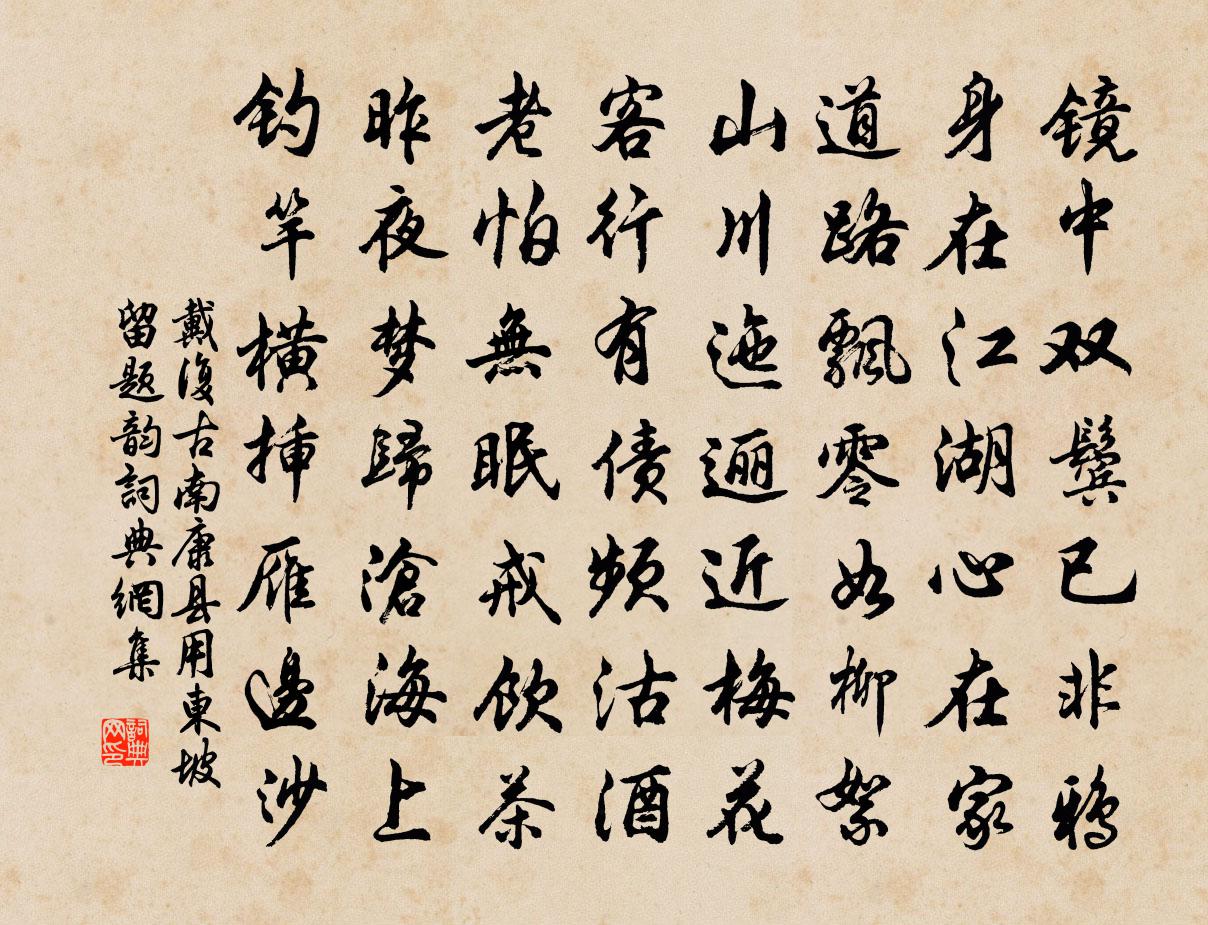 镜中双鬓已非鸦
身在江湖心在家
道路飘零如柳絮
山川迤逦近梅花
客行有债频沽酒
老怕無眠戒饮茶
昨夜梦歸滄海上
钓竿横插雁邊沙
戴復古南康县用東坡
留题韵詞典網集
詞典
网印